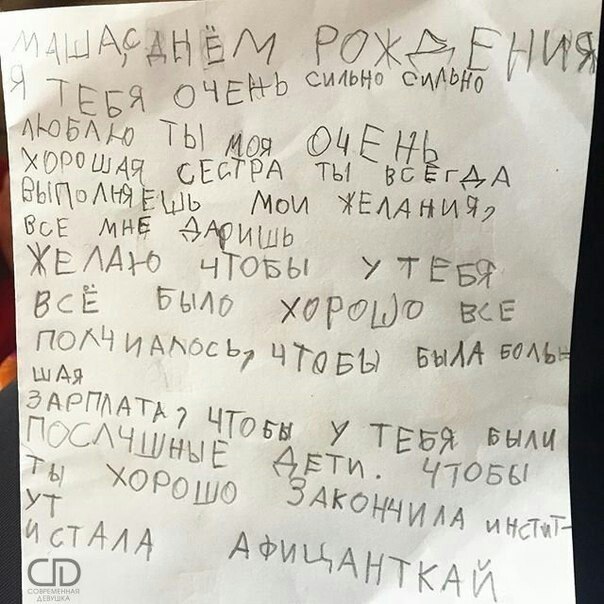 МАША, С ДНЁМ РОЖДЕНИЯ
Я ТЕБЯ ОЧЕНЬ СИЛЬНО СИЛЬНО
ЛЮБЛЮ ТЫ МОЯ ОЧЕНЬ
ХОРОШАЯ СЕСТРА ТЫ ВСЕГДА
ВЫПОЛНЯЕШЬ МОИ ЖЕЛАНИЯ,
ВСЕ МНЕ ДАРИШЬ
ЖЕЛАЮ ЧТОБЫ У ТЕБЯ
ВСЁ БЫЛО ХОРОШО ВСЕ
ПОЛЧИАЛОСЬ, ЧТОБЫ БЫЛА БОЛЬ-
ШАЯ
ЗАРПЛАТА, ЧТОБЫ У ТЕБЯ БЫЛИ
ПОСЛЧШНЫЕ ДЕТИ. ЧТОБЫ
ТЫ ХОРОШО ЗАКОНЧИЛА ИНСТИТ-
УТ
И СТАЛА АФИЦАНТКАЙ
СОВРЕМЕННАЯ
ДЕВУШКА